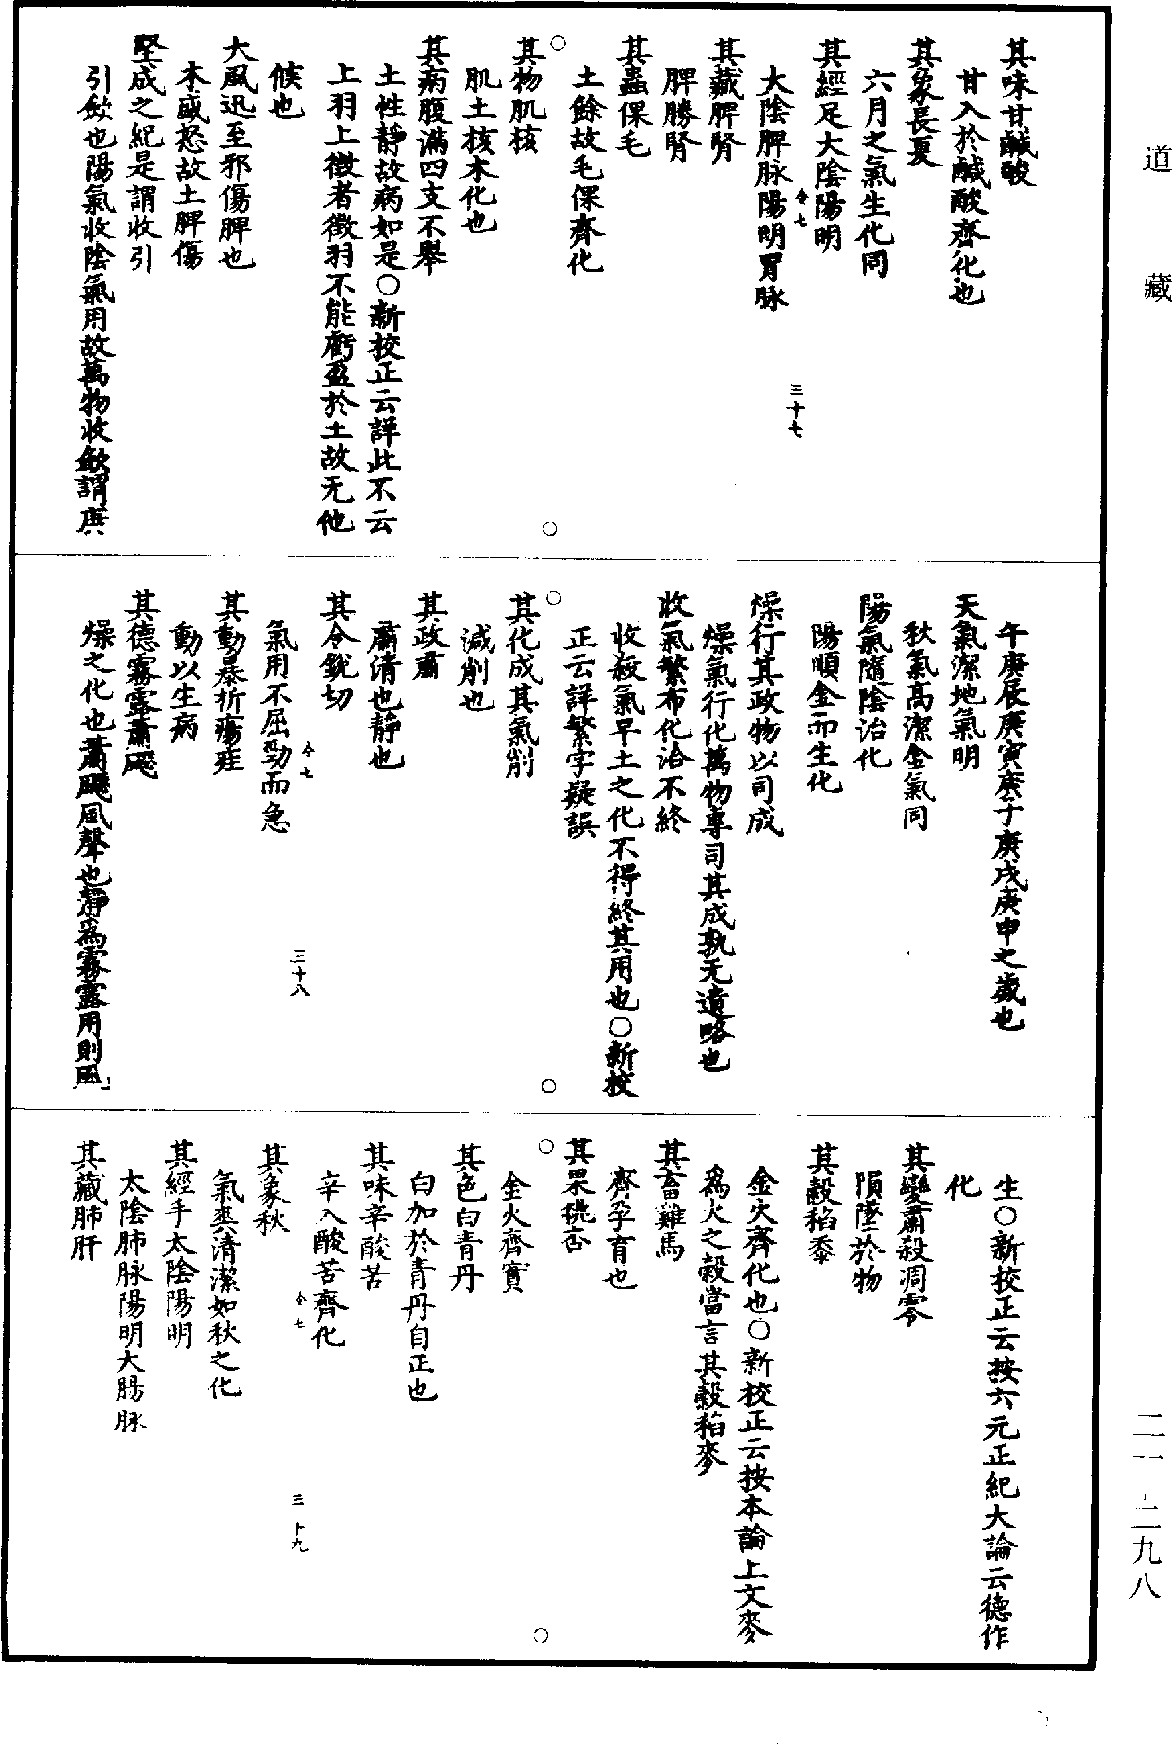 道藏
其味甘鹹酸
甘入於鹹酸齊化也
其象長夏
六月之氣生化同
其經足太陰陽明
令七
大陰脾脉陽明胃脉
三十七
其藏脾腎
脾勝腎
其蟲倮毛
土餘故毛倮齊化
○
○
其物肌核
肌土核木化也
其病腹滿四支不舉
土性靜故病如是○新校正云詳此不云
上羽上徵者徵羽不能虧盈於土故无他
候也
大風迅至邪傷脾也
木盛怒故土脾傷
堅成之紀是謂收引
引斂也陽氣收陰氣用故萬物收斂謂庚
午庚辰庚寅庚子庚戌庚申之歲也
天氣潔地氣明
秋氣高潔金氣同
陽氣隨陰治化
陽順金而生化
燥行其政物以司成
燥氣行化萬物專司其成孰无遺略也
收氣繁布化洽不終
收殺氣早土之化不得終其用也○新校
正云詳繁字疑誤
○
○
其化成其氣削
減削也
其政肅
肅清也靜也
其令銳切
令七
氣用不屈勁而急
三十八
其動暴折瘍疰
動以生病
其德霧露蕭飋
燥之化也蕭飋風聲也靜爲霧露用則風
生○新校正云按六元正紀大論云德作
化
其變肅殺凋零
隕墜於物
其穀稻黍
金火齊化也○新校正云按本論上文麥
爲火之穀當言其穀稻麥
其畜雞馬
齊孕育也
其果桃杏
○
○
金火齊實
其色白青丹
白加於青丹自正也
其味辛酸苦
辛入酸苦齊化
令七
其象秋
三十九
氣爽清潔如秋之化
其經手太陰陽明
太陰肺脉陽明大腸脉
其藏肺肝
二一一二九八